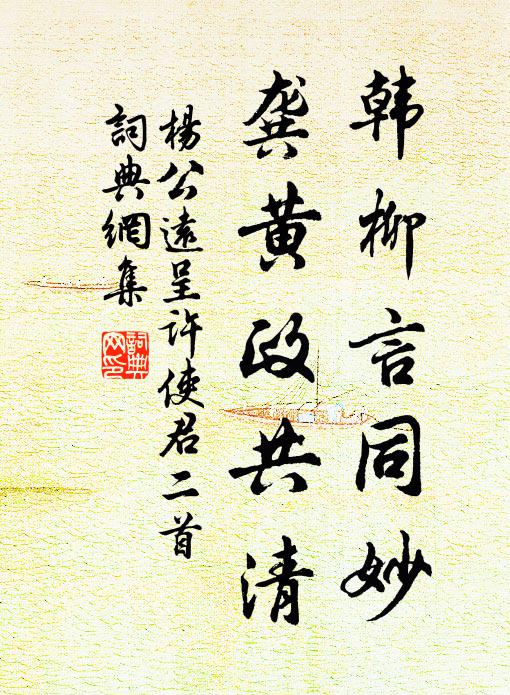 韩柳言同妙
龚黄政共清
楊公遠呈许使君二首
詞典網集
詞典
网印